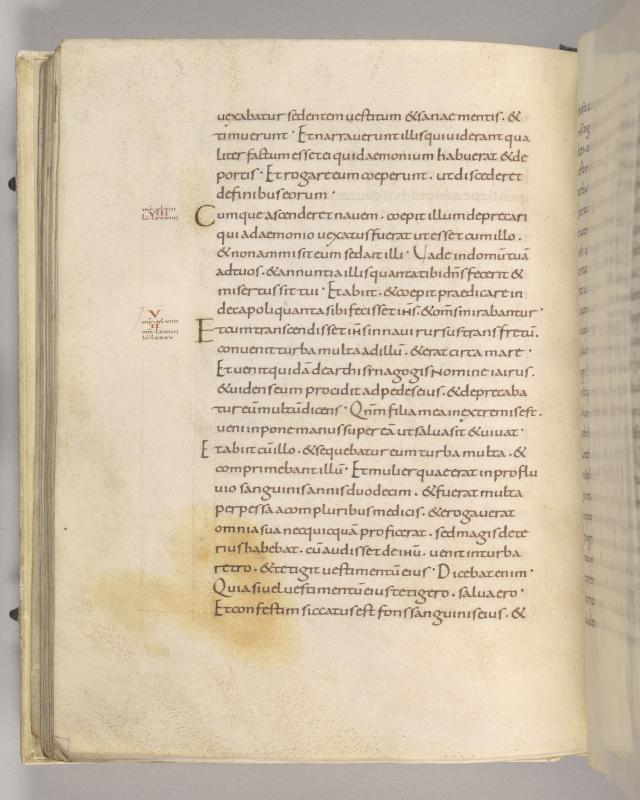 uexabatur sedentem uestitum & sanae mentis. &
timuerunt· Et narrauerunt illis qui uiderant qua
liter factum esset ei qui daemonium habuerat & de
portis· Et rogare eum coeperunt. ut discederet
de finibus eorum·
Cumque ascenderet nauem. coepit illum deprecari
qui a daemonio uexatus fuerat ut esset cum illo.
& non ammisit eum sed ait illi· Uade in domū tuā
ad tuos. & annuntia illis quanta tibi dn̄s fecerit &
misertus sit tui· Et abiit. & coepit praedicare in
decapoli quanta sibi fecisset ih̄s. & om̄s mirabantur·
Et cum transcendisset ih̄s in naui rursus trans fretū.
conuenit turba multa ad illū. & erat circa mare·
Et uenit quidā de archisynagogis nomine iairus.
& uidens eum procidit ad pedes eius. & depreca ba
tur eū multū dicens· Qnm̄ filia mea in extremis est.
ueni inpone manus super eā ut salua sit & uiuat·
Et abiit cū illo. & sequebatur eum turba multa. &
comprimebant illū· Et mulier quae erat in proflu
uio sanguinis annis duodecim. & fuerat multa
perpessa a compluribus medicis. & erogauerat
omnia sua nec quicquā proficerat. sed magis dete
rius habebat. cū audisset de ih̄u. uenit in turba
retro. & tetigit uestimentū eius· Dicebat enim·
Quia si uel uestimentū eius tetigero. salua ero·
Et confestim siccatus est fons sanguinis eius. &